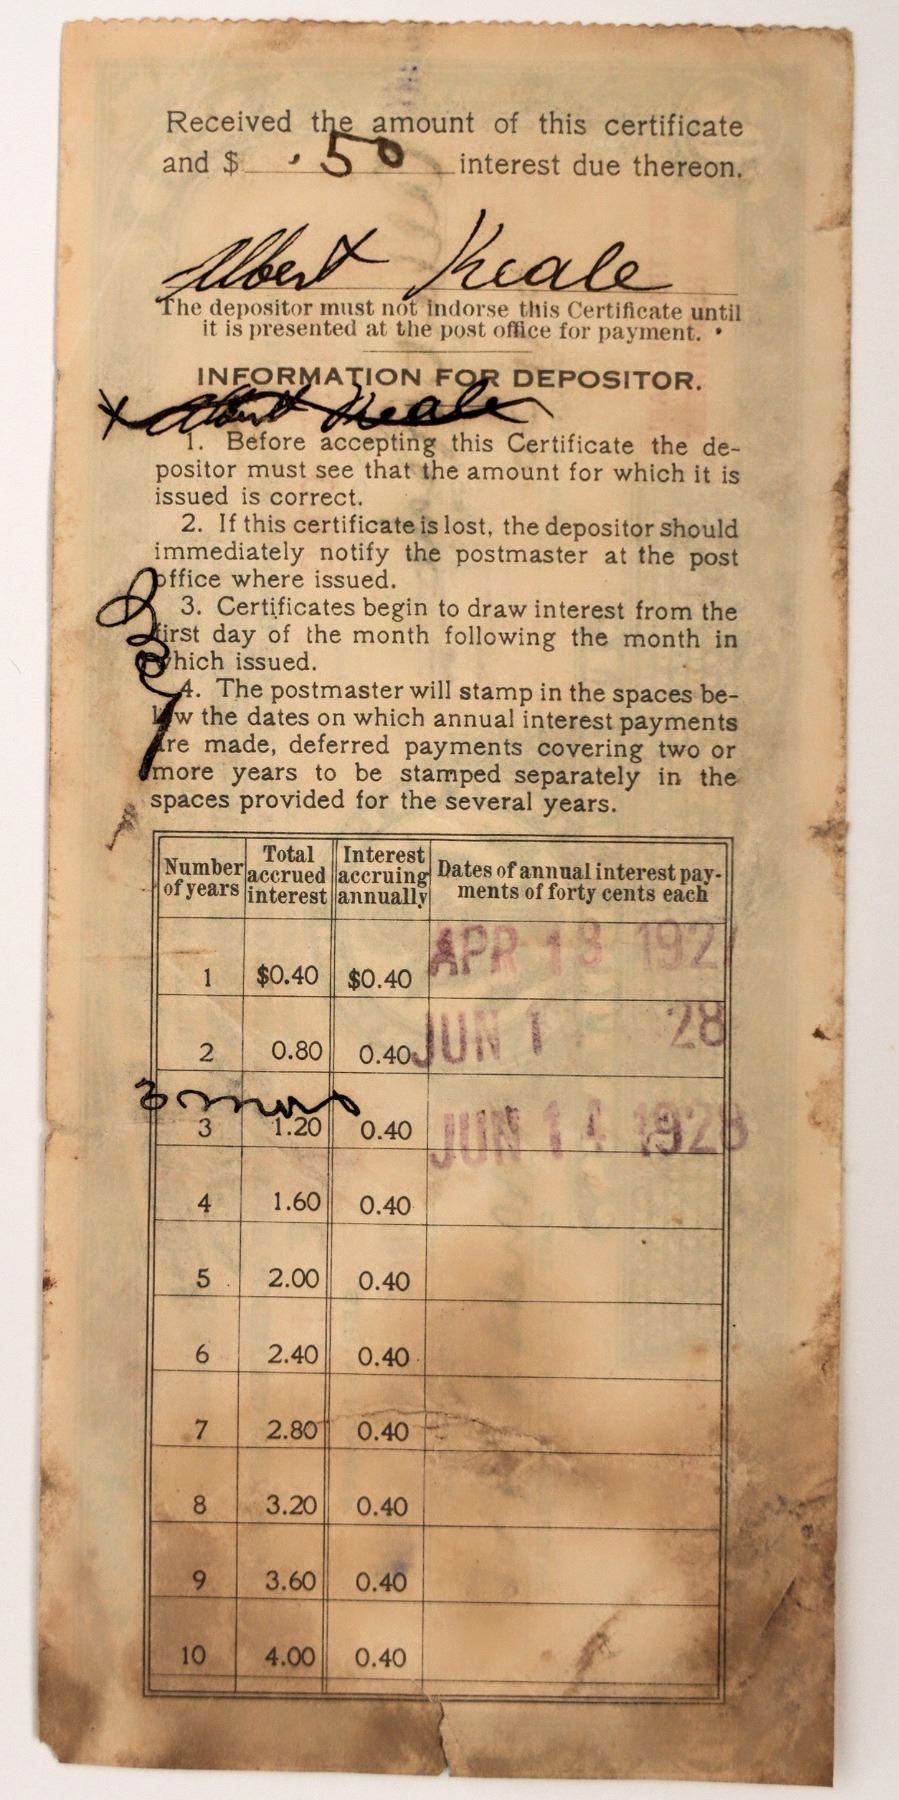 Received the amount of this certificate
and $ .50 interest due thereon.
Albert Keale
The depositor must not indorse this Certificate until
it is presented at the post office for payment.
INFORMATION FOR DEPOSITOR.
x Albert Keale
1. Before accepting this Certificate the de-
positor must see that the amount for which it is
issued is correct.
2. If this certificate is lost, the depositor should
immediately notify the postmaster at the post
office where issued.
3. Certificates begin to draw interest from the
first day of the month following the month in
which issued.
4. The postmaster will stamp in the spaces be-
low the dates on which annual interest payments
are made, deferred payments covering two or
more years to be stamped separately in the
spaces provided for the several years.
Number of years Total accrued interest Interest accruing annually Dates of annual interest pay-ments of forty cents each
1 $0.40 $0.40 APR 13 1927
2 0.80 0.40 JUN 1 28
3 mos
3 1.20 0.40 JUN 14 1928
4 1.60 0.40
5 2.00 0.40
6 2.40 0.40
7 2.80 0.40
8 3.20 0.40
9 3.60 0.40
10 4.00 0.40